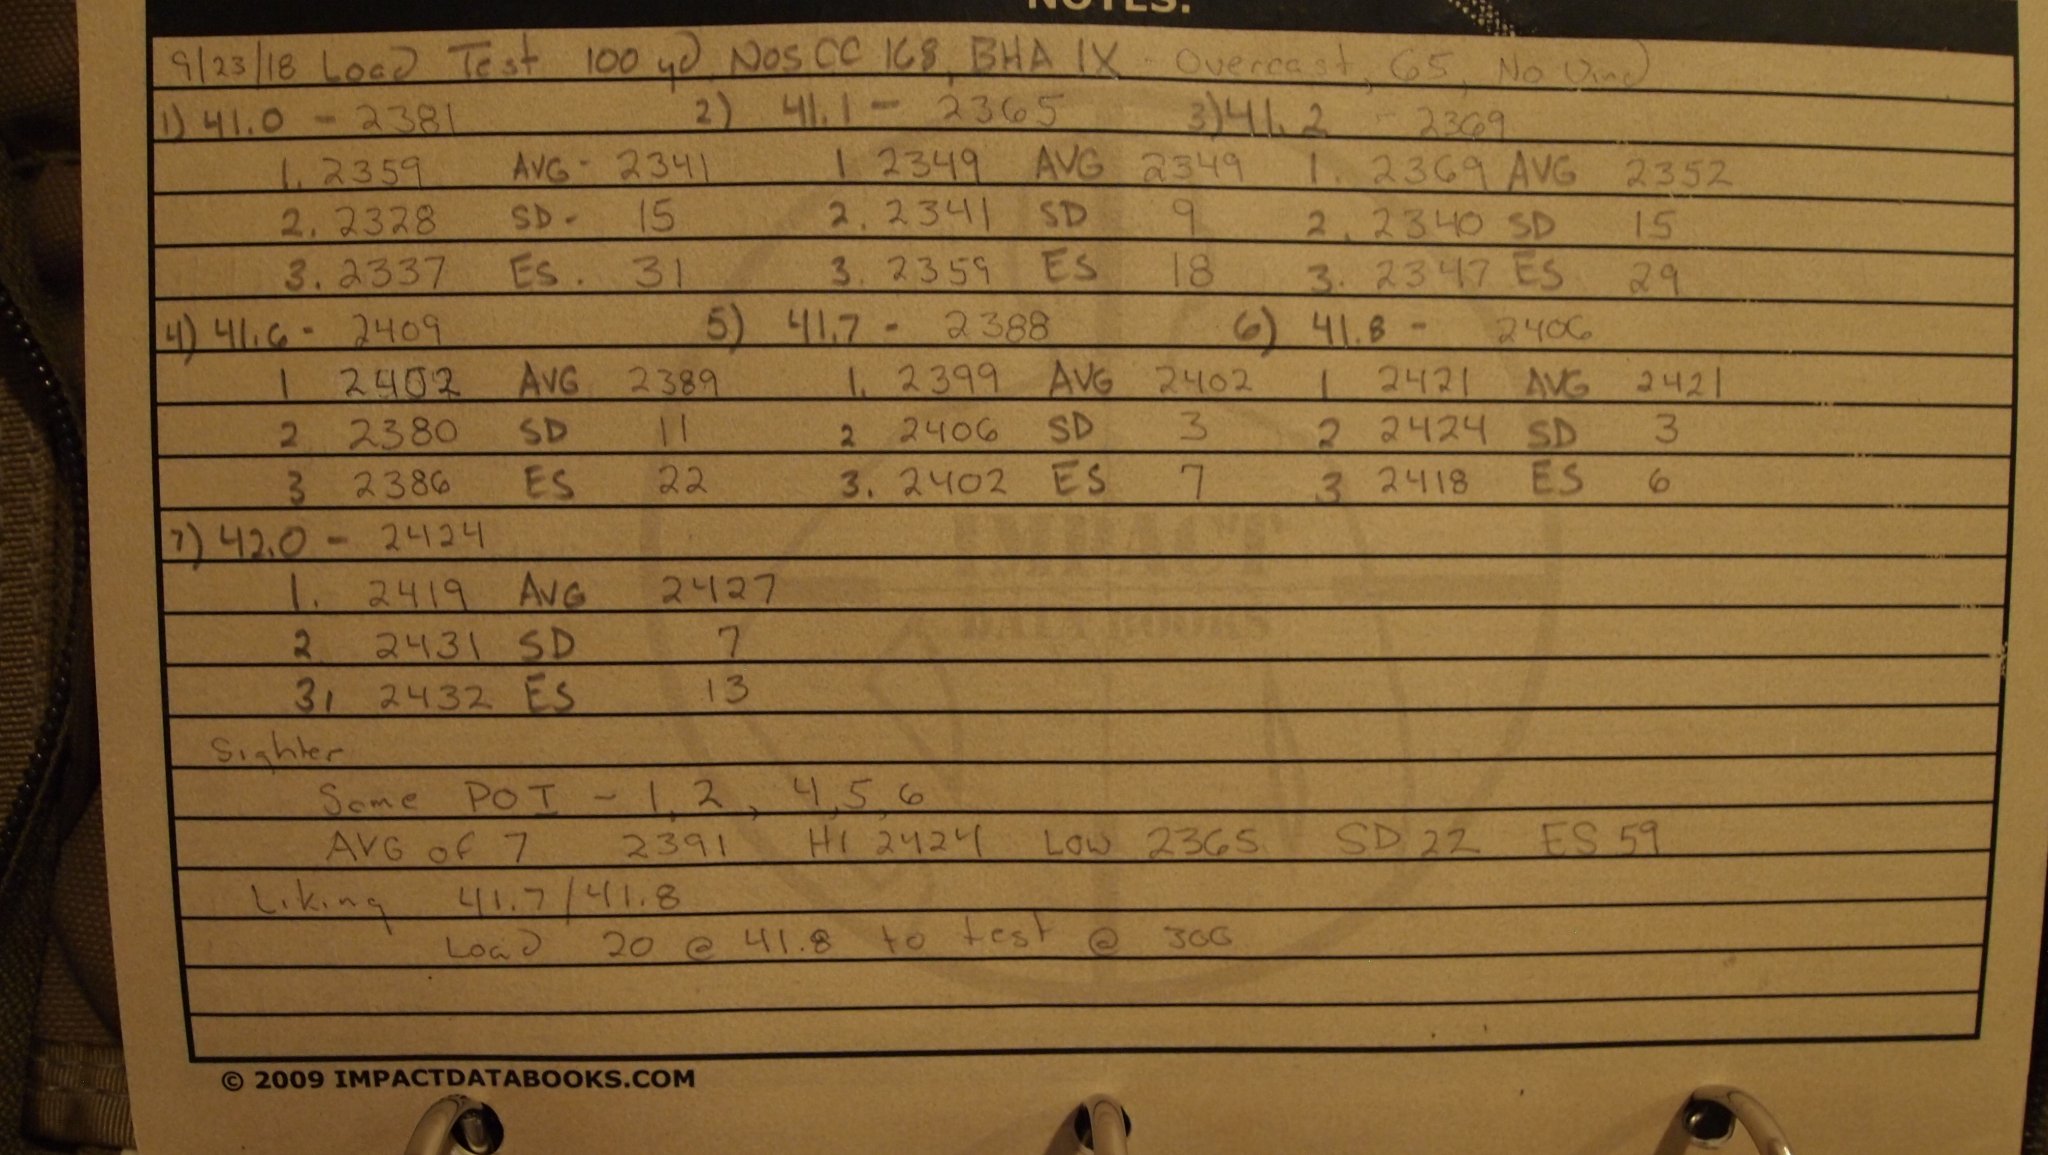 NOTES:
9/23/18 Load Test 100 yd, Nos CC 168, BHA 1X - Overcast, 65, No Wind
1) 41.0 - 2381 2) 41.1 - 2365 3) 41.2 - 2369
1. 2359 AVG - 2341 1 2349 AVG 2349 1. 2369 AVG 2352
2. 2328 SD - 15 2. 2341 SD 9 2. 2340 SD 15
3. 2337 ES. 31 3. 2359 ES 18 3. 2347 ES 29
4) 41.6 - 2409 5) 41.7 - 2388 6) 41.8 - 2406
1 2402 AVG 2389 1. 2399 AVG 2402 1 2421 AVG 2421
2 2380 SD 11 2 2406 SD 3 2 2424 SD 3
3 2386 ES 22 3. 2402 ES 7 3 2418 ES 6
7) 42.0 - 2424
1. 2419 AVG 2427
2 2431 SD 7
3. 2432 ES 13
Sighter
Same POI - 1, 2, 4, 5, 6
AVG of 7 2391 HI 2424 Low 2365 SD 22 ES 59
Liking 41.7/41.8
Load 20 @ 41.8 to test @ 300
IMPACT
DATA BOOKS
© 2009 IMPACTDATABOOKS.COM